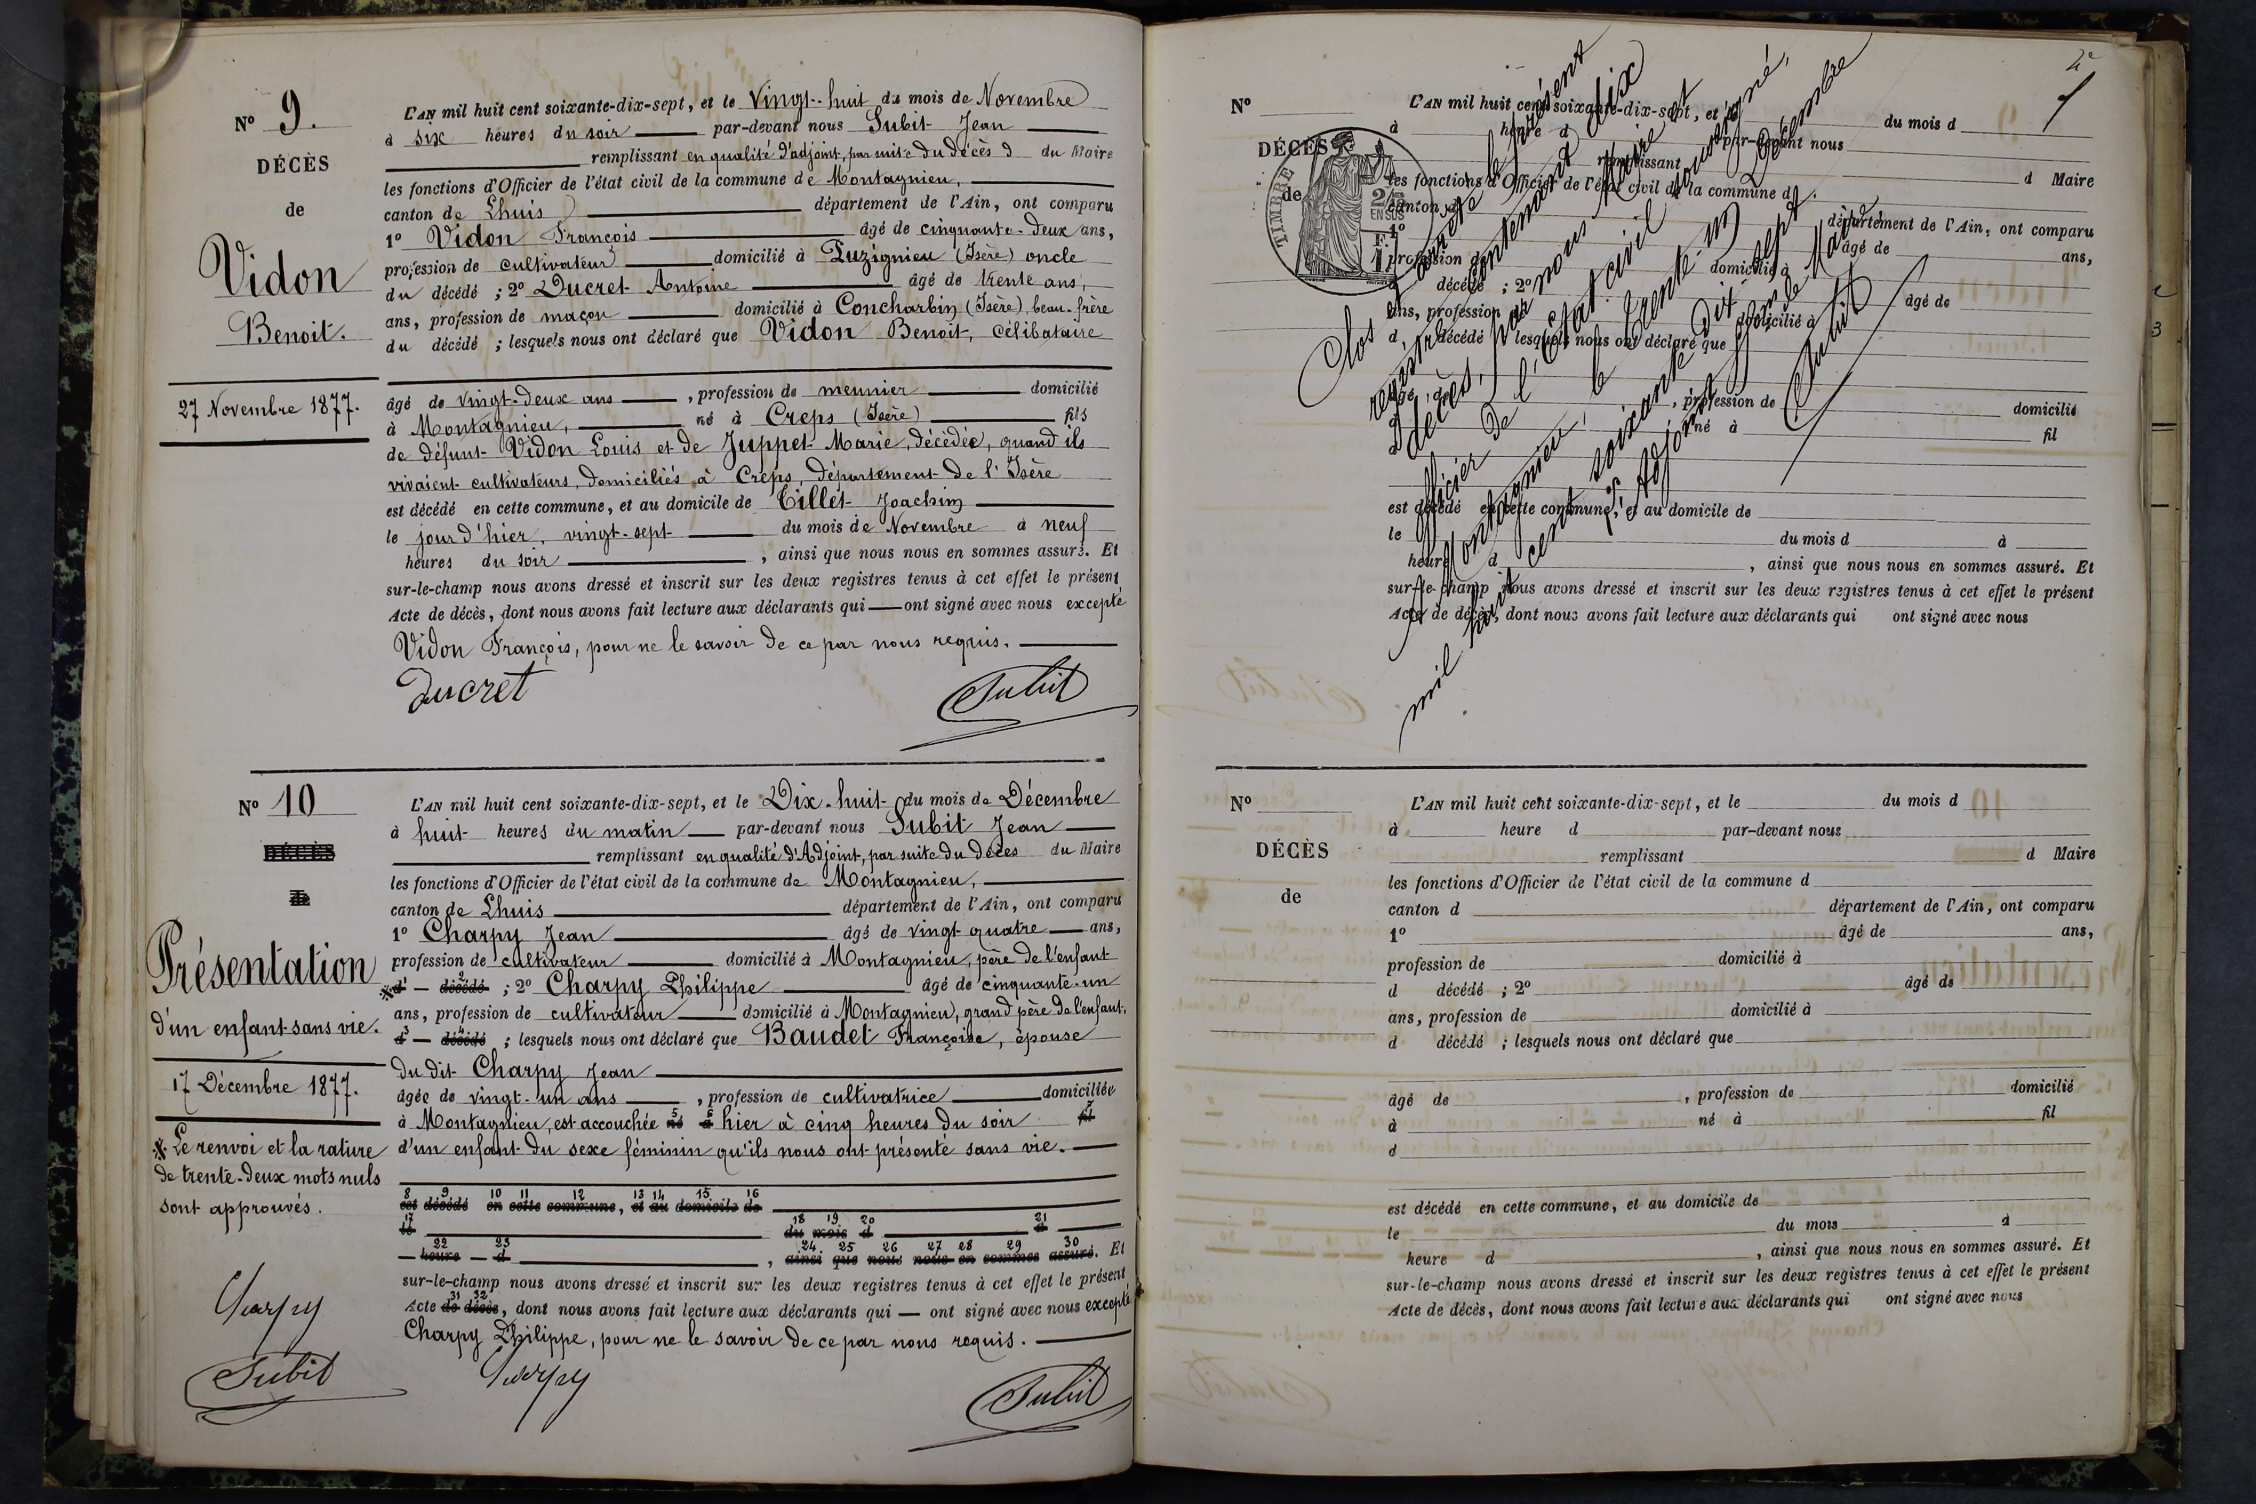 N° 9.
DÉCÈS
de
Vidon
Benoit.
27 Novembre 1877.
L'AN mil huit cent soixante-dix-sept, et le Vingt-huit du mois de Novembre
à six heures du soir par-devant nous Subit Jean
remplissant en qualité d'adjoint, par suite du décès d du Maire
les fonctions d'Officier de l'état civil de la commune de Montagnieu,
canton de Lhuis département de l'Ain, ont comparu
1° Vidon François âgé de cinquante-deux ans,
profession de cultivateur domicilié à Puzignieu (Isère) oncle
du décédé ; 2° Ducret Antoine âgé de trente ans,
ans, profession de maçon domicilié à Concharbin (Isère), beau-frère
du décédé ; lesquels nous ont déclaré que Vidon Benoit, célibataire
âgé de vingt-deux ans, profession de meunier domicilié
à Montagnieu, né à Creps (Isère) fils
de défunt Vidon Louis et de Juppet Marie, décédée, quand ils
vivaient cultivateurs, domiciliés à Creps, département de l'Isère
est décédé en cette commune, et au domicile de Tillet Joachim
le jour d'hier, vingt-sept du mois de Novembre à neuf
heures du soir, ainsi que nous nous en sommes assuré. Et
sur-le-champ nous avons dressé et inscrit sur les deux registres tenus à cet effet le présent
Acte de décès, dont nous avons fait lecture aux déclarants qui ont signé avec nous excepté
Vidon François, pour ne le savoir de ce par nous requis.
Ducret Subit
N° 10
DÉCÈS
de
Présentation
d'un enfant sans vie.
17 Décembre 1877.
※ Le renvoi et la rature
de trente-deux mots nuls
sont approuvés.
Charpy
Subit
L'AN mil huit cent soixante-dix-sept, et le Dix-huit du mois de Décembre
à huit heures du matin par-devant nous Subit Jean
remplissant en qualité d'Adjoint, par suite du décès du Maire
les fonctions d'Officier de l'état civil de la commune de Montagnieu,
canton de Lhuis département de l'Ain, ont comparu
1° Charpy Jean âgé de vingt-quatre ans,
profession de cultivateur domicilié à Montagnieu, père de l'enfant
※ d décédé ; 2° Charpy Philippe âgé de cinquante-un
ans, profession de cultivateur domicilié à Montagnieu, grand père de l'enfant.
d décédé ; lesquels nous ont déclaré que Baudet Françoise, épouse
du dit Charpy Jean
âgée de vingt-un ans, profession de cultivatrice domiciliée
à Montagnieu, est accouchée né à hier à cinq heures du soir fil
d'un enfant du sexe féminin qu'ils nous ont présenté sans vie.
8 9 10 11 12 13 14 15 16
est décédé en cette commune, et au domicile de
17 18 19 20 21
le du mois d à
22 23 24 25 26 27 28 29 30
heure d, ainsi que nous nous en sommes assuré. Et
sur-le-champ nous avons dressé et inscrit sur les deux registres tenus à cet effet le présent
31 32
Acte de décès, dont nous avons fait lecture aux déclarants qui ont signé avec nous excepté
Charpy Philippe, pour ne le savoir de ce par nous requis.
Charpy Subit
N°
DÉCÈS
de
TIMBRE
2/10
EN SUS
L'AN mil huit cent soixante-dix-sept, et le du mois d
à heure d par-devant nous
remplissant d Maire
les fonctions d'Officier de l'état civil de la commune d
canton d département de l'Ain, ont comparu
1° âgé de ans,
profession de domicilié à
d décédé ; 2° âgé de
ans, profession de domicilié à
d décédé ; lesquels nous ont déclaré que
âgé de, profession de domicilié
à né à fil
d
est décédé en cette commune, et au domicile de
le du mois d à
heure d, ainsi que nous nous en sommes assuré. Et
sur-le-champ nous avons dressé et inscrit sur les deux registres tenus à cet effet le présent
Acte de décès, dont nous avons fait lecture aux déclarants qui ont signé avec nous
Clos et arrêté le présent
registre contenant dix
décès, par nous Maire et
officier de l'état civil soussigné,
Montagnieu, le trente-un Décembre
mil huit cent soixante dix sept.
P. l'Adjoint
Subit
N°
DÉCÈS
de
L'AN mil huit cent soixante-dix-sept, et le du mois d
à heure d par-devant nous
remplissant d Maire
les fonctions d'Officier de l'état civil de la commune d
canton d département de l'Ain, ont comparu
1° âgé de ans,
profession de domicilié à
d décédé ; 2° âgé de
ans, profession de domicilié à
d décédé ; lesquels nous ont déclaré que
âgé de, profession de domicilié
à né à fil
d
est décédé en cette commune, et au domicile de
le du mois d
heure d, ainsi que nous nous en sommes assuré. Et
sur-le-champ nous avons dressé et inscrit sur les deux registres tenus à cet effet le présent
Acte de décès, dont nous avons fait lecture aux déclarants qui ont signé avec nous